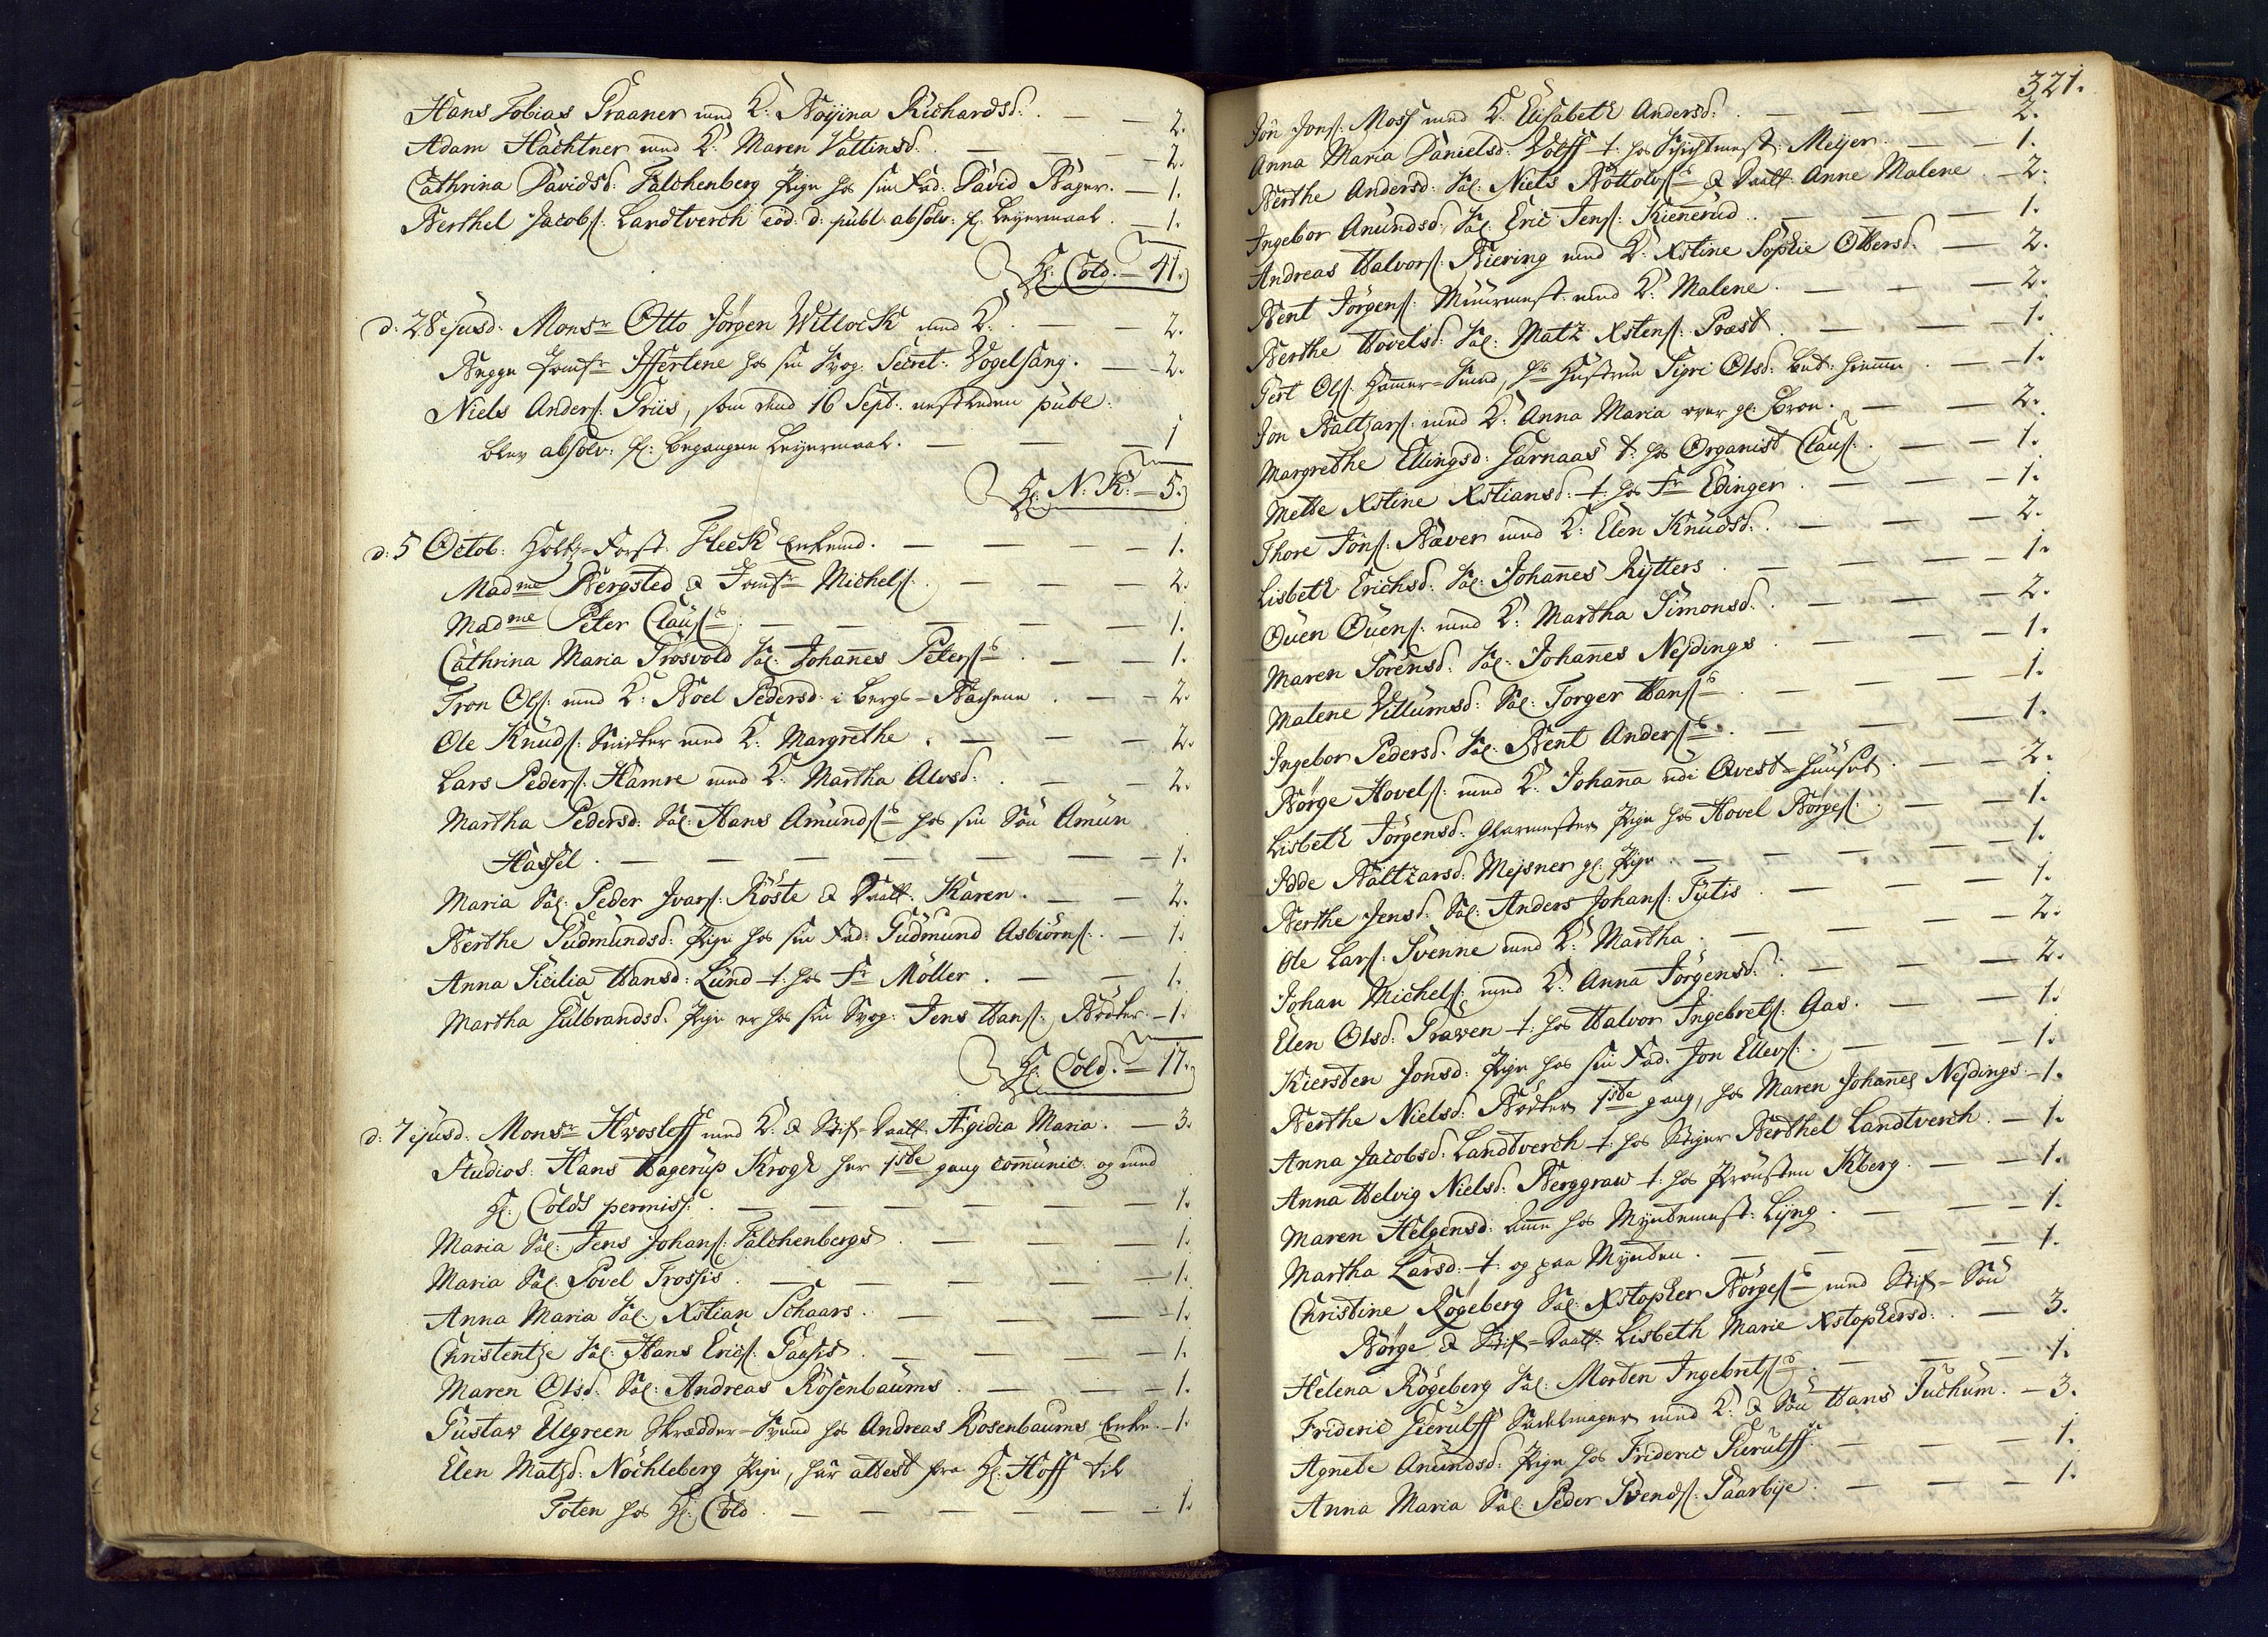 Hans Tobias Praaner med K: Noyina Richardsd: . — — 2.
Adam Hachtner med K: Maren Vattinsd. — — — 2.
Cathrina Davidsd: Falchenberg Pige hos sin Fad: David Bager. — 1.
Berthel Jacobs: Landtverch eod: d: publ: absolv: f. Leyermaal . — 1.
H: Cold. — 41.
d: 28 ejusd: Monsr Otto Jørgen Witlock med K: . — — 2.
Begge Jomfr Iffertene hos sin Svog: Secret: Vogelsang. — 2.
Niels Anders: Priis, som dend 16 Sept. nestleden publ:
blev absolv: f: begangen Leyermaal. — — — 1
H: N: K: — 5.
d: 5 Octob: Holtz-Forst: Fleck Enkemd. — — — 1.
Madme Bergsted & Jomfr Michels: . — — — 2.
Madme Peter Claus: . — — — — 1.
Cathrina Maria Prosvold Sal: Johannes Peters: . — — 1.
Tron Ols: med K: Boel Pedersd: i Bergs-Bachene . — — 2.
Ole Knuds: Snidker med K: Margrethe . — — — 2.
Lars Peders: Hamre med K: Martha Alvsd: . — — 2.
Martha Pedersd: Sal: Hans Amunds: hos sin Søn Amun
Hassel . — — — — — — 1.
Maria Sal: Peder Ivars: Røste & Datt: Karen . — — 2.
Berthe Gudmundsd: Pige hos sin Fad: Gudmund Asbiørns: . — 1.
Anna Sicilia Hansd: Lund t: hos Fr Möller . — — 1.
Martha Gulbrandsd: Pige er hos sin Svog: Jens Hans: Bødker — 1.
H: Cold. — 17.
d: 7 ejusd. Monsr Hvosleff med K: & Stif-Datt: Ægidia Maria . — 3.
Studios: Hans Hagerup Krogh har 1ste gang communic: og med
H: Colds permiss: . — — — — — 1.
Maria Sal: Jens Johans: Falchenbergs . — — — 1.
Maria Sal: Povel Trossis . — — — — 1.
Anna Maria Sal: Xstian Schaars . — — — 1.
Christentze Sal: Hans Erics: Gaasis . — — — 1.
Maren Olsd: Sal: Andreas Rosenbaums . — — — 1.
Gustav Uegreen Skrædder-Svend hos Andreas Rosenbaums Enke. — 1.
Elen Matzd: Nøchleberg Pige, har attest fra H: Hoff til
Toten hos H: Cold . — — — — — 1.
321.
Jon Jons: Moss med K: Elisabeth Andersd: . — — — 2.
Anna Maria Danielsd: Wolff t: hos Schichtmest: Meyer . — 1.
Berthe Andersd: Sal: Niels Bottolvs: & Datt: Anne Malene — 2.
Ingebor Amundsd: Sal: Eric Jens: Kienerud . — — — 1.
Andreas Halvors: Biering med K: Xstine Sophie Ottersd: — 2.
Bent Jørgens: Muurmest: med K: Malene . — — — 2.
Berthe Hovelsd: Sal: Matz Xstens: Præst . — — — 1.
Gert Ols: Hammer-Smed, hs Hustrue Sigri Olsd: bet: hiemme . — 1.
Jon Baltzars: med K: Anna Maria over gl: Broe . — — 2.
Margrethe Ellingsd: Garnaas t: hos Organist Claus: . — — 1.
Mette Xstine Xstiansd: t: hos Fr Edinger . — — — 1.
Thore Jons: Bæver med K: Elen Knudsd: . — — — 2.
Lisbeth Erichsd: Sal: Johannes Rytters . — — — 1.
Ouen Ouens: med K: Martha Simonsd: . — — — 2.
Maren Sørensd: Sal: Johannes Neidings . — — — 1.
Malene Villumsd: Sal: Torger Hans: . — — — 1.
Ingebor Pedersd: Sal: Bent Anders: . — — — 1.
Børge Hovels: med K: Johanna udi Qvest-Huuset . — — 2.
Lisbeth Jørgensd: Glarmester Pige hos Hovel Børges: . — — 1.
Adde Baltzarsd: Mejsner gl: Pige . — — — — 1.
Berthe Jensd: Sal: Anders Johans: Tytis . — — — 1.
Ole Lars: Svenne med K: Martha . — — — — 2.
Johan Michels: med K: Anna Jørgensd: . — — — 2.
Elen Olsd: Prawen t: hos Halvor Ingebrets: Aas . — — 1.
Kiersten Jonsd: Pige hos sin Fad: Jon Ellevs: . — — — 1.
Berthe Nielsd: Bødker 1ste gang, hos Maren Johannes Neidings — 1.
Anna Jacobsd: Landtverch t: hos Stiger Berthel Landtverch . — 1.
Anna Helvig Nielsd: Berggraw t: hos Provsten Kberg . — — 1.
Maren Helgensd: Amme hos Myntemest: Lyng . — — — 1.
Martha Larsd: t: og paa Mynten . — — — — 1.
Christine Rogeberg Sal: Xstopher Børges: med Stif-Søn
Børge & Stif-Datt: Lisbeth Marie Xstophersd: . — 3.
Helena Rogeberg Sal: Morten Ingebrets: . — — — 1.
Frideric Gierulff Sadelmager med K: & Søn Hans Juchum . — 3.
Agnete Amundsd: Pige hos Frideric Gierulff . — — — 1.
Anna Maria Sal: Peder Svends: Paarbye . — — — 1.